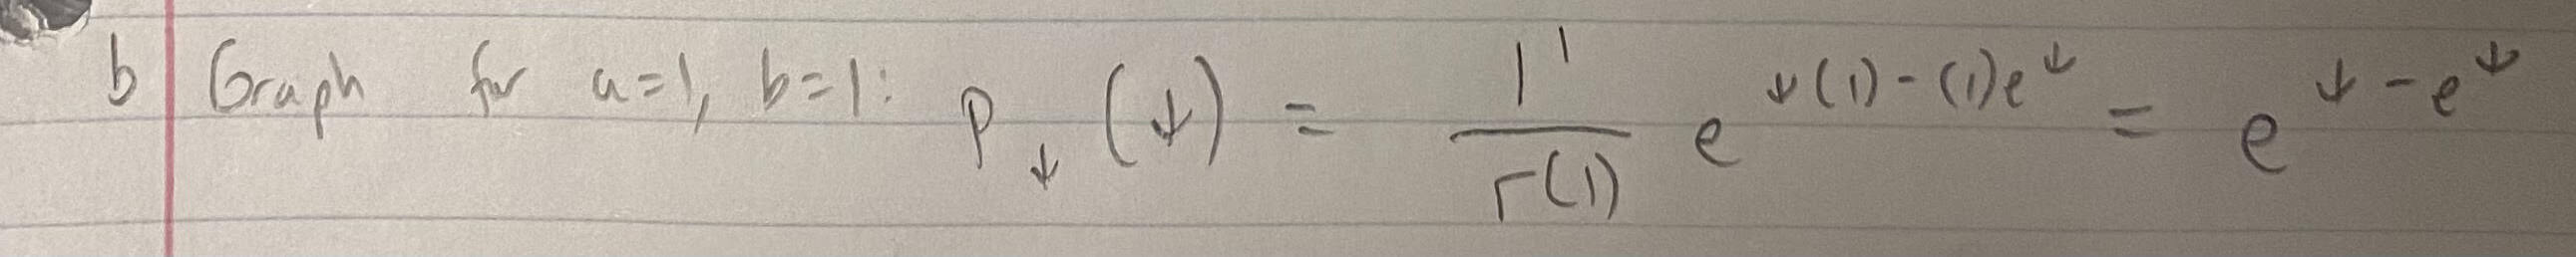 b Graph for a=1, b=1: P_ψ(ψ) = 1^1/Γ(1) e^(ψ(1)-(1)e^ψ) = e^(ψ-e^ψ)